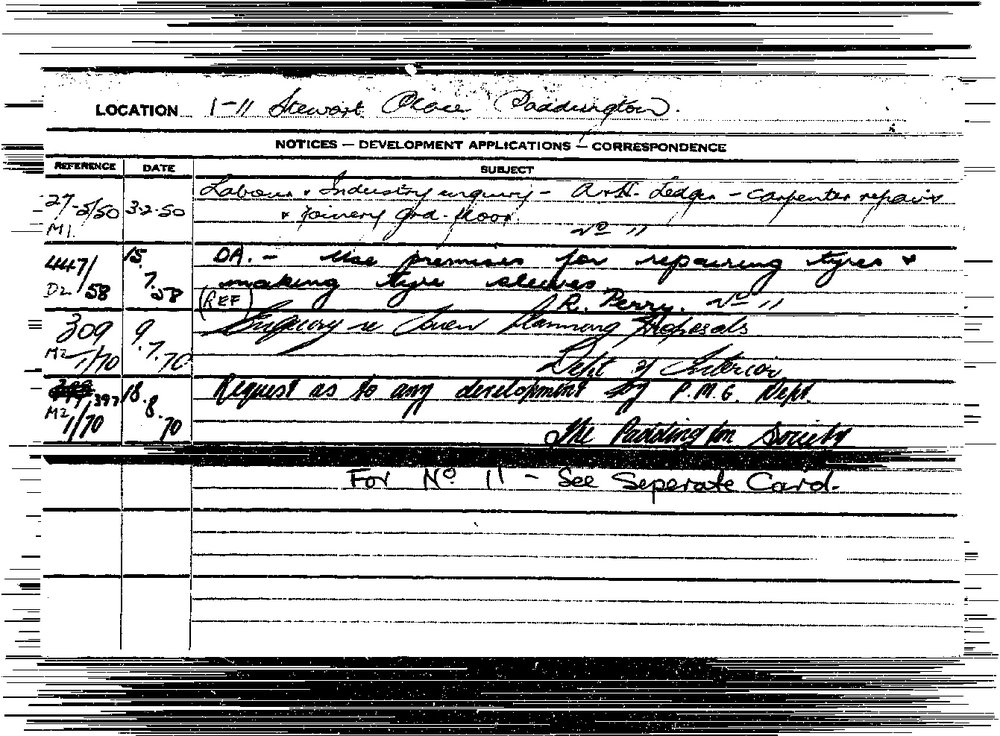 LOCATION 1-11 Stewart Place Paddington.
NOTICES — DEVELOPMENT APPLICATIONS — CORRESPONDENCE
REFERENCE DATE SUBJECT
27-5/50 3-2-50 Labour & Industry enquiry - A & H. Ledger - carpenter repairs
& joinery grd. floor.
M1. No 11
447/ 15 DA. - Use premises for repairing tyres &
D2 58 7.58 making tyre sleeves
(REF) R. Perry. No 11
309 9 Enquiry re Town Planning Proposals
M2 1/70 .7.70 Dept of Interior
397 18. Request as to any development by P.M.G. Dept.
M2 1/70 8. 70 The Paddington Society
For No 11 - See Seperate Card.